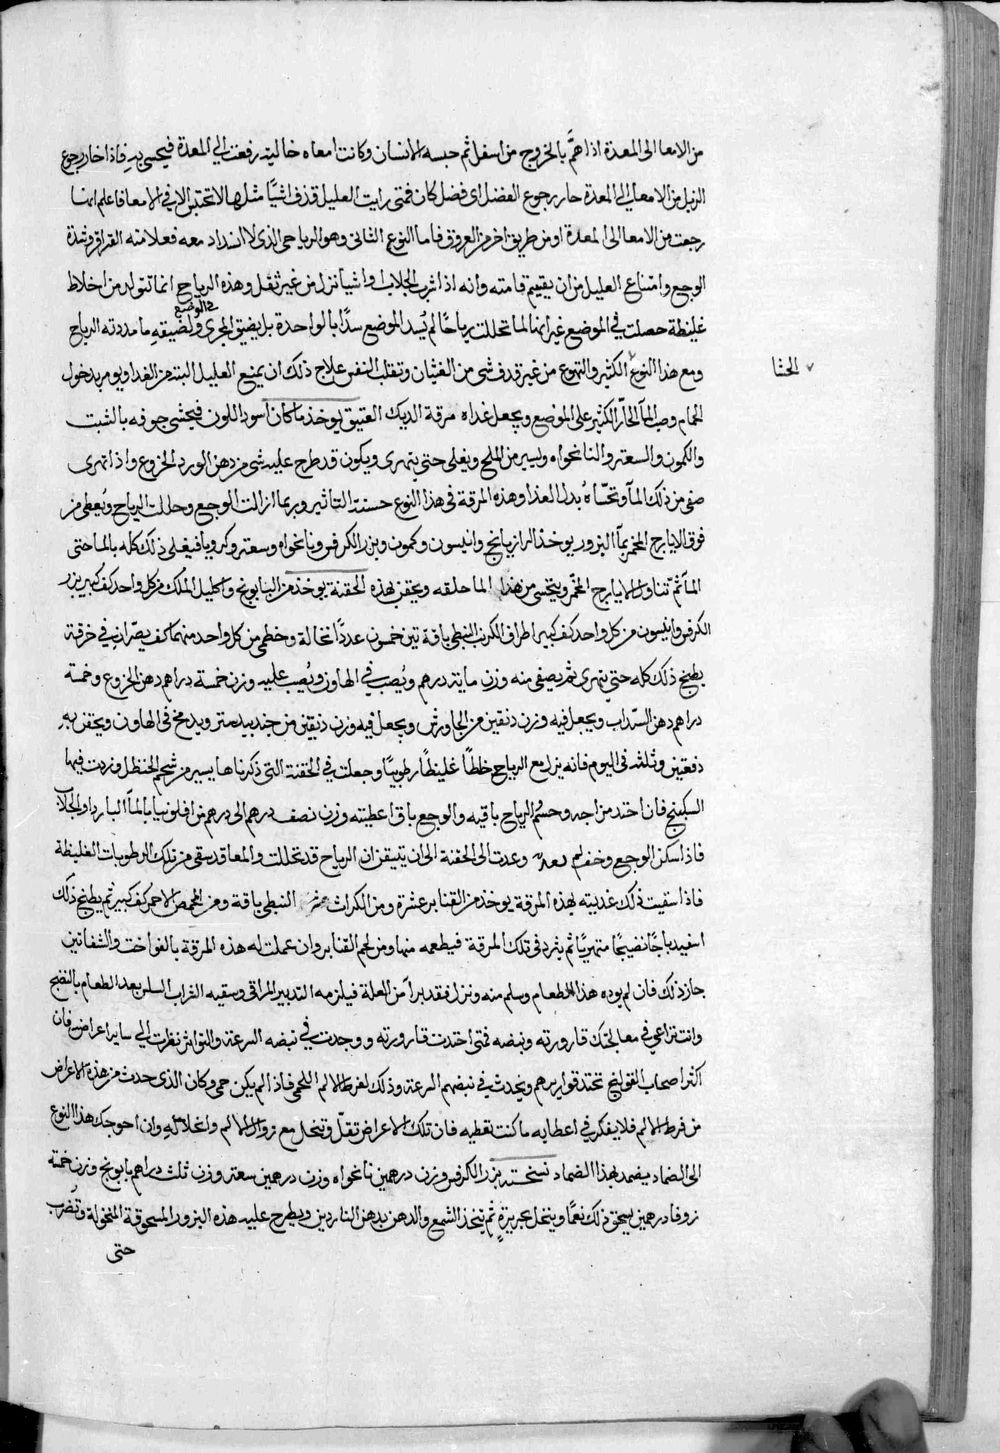 من الامعا الى المعدة اذا همَّ بالخروج من اسفل ثم حبسه الانسان وكانت امعاه خالية رفعت الى المعدة فيحس به فاذا خار رجوع
الزبل من الامعا الى المعدة حار رجوع الفضل اى فضل كان فمتى رايت العليل قذف اشيًا مثلها لا تحتبس الا في الامعا فاعلم انها
رجعت من الامعا الى المعدة او من طريق اخر من العروق فاما النوع الثانى وهو الرياحى الذى لا انسداد معه فعلامته القراقر وشدة
الوجع وامتناع العليل من ان يقيم قامته وانه اذا شرب الجلاب واشيا نزل من غير ثقل وهذه الرياح انما تتولد من اخلاط
غليظة حصلت في الموضع غير انها لما تحللت رياحًا لم يُسد الموضع سدًا بالواحدة بل يضيق المجرى ولضيقه ما مددته الرياح
في الموضع
ومع هذا النوع الكثير والتهوع من غير قذف شى من الغثيان وتقلب النفس علاج ذلك ان يمنع العليل البتة من الغدا ويومر بدخول
الجشا
الحمام وصب الما الحارّ الكثير على الموضع ويجعل غداه مرقة الديك العتيق يوخذ ما كان اسود اللون فيحشى جوفه بالشبت
والكمون والسعتر والنانخواه ويسير من الملح ويغلى حتى يتهرى ويكون قد طرح عليه شى من دهن الورد الخروع واذا تهرى
صفى من ذلك الما وتحساهُ بدل الغدا وهذه المرقة فى هذا النوع حسنة التاثير وربما ازالت الوجع وحللت الرياح ويُعطى من
فوق الايارج المخمر بما البزور يوخذ الرازيانج وانيسون وكمون وبزر الكرفس ونانخواه وسعتر وكرويا فيغلى ذلك كله بالما حتى
الما ثم تناول الايارج المخمر ويتحسى من هذا الما حلقه ويحقن بهذه الحقنة يوخذ من البابونج واكليل الملك من كل واحد كف كبير بزر
الكرفس وانيسون من كل واحد كف كبير اطراف الكرنب النبطى باقة تين خمسون عددًا نخالة وخطمى من كل واحد منهما كف يصّران في خرقة
يطبخ ذلك كله حتى يتهرى ثم يصفى منه وزن ماية درهم ويُصب في الهاون ويُصب عليه وزن خمسة دراهم دهن الخروع وخمسة
دراهم دهن السذاب ويجعل فيه وزن دنقين من الجاوشير ويجعل فيه وزن دنيقين من جندبيدستر ويدمخ فى الهاون ويحقن به
دفعتين وثلثه فى اليوم فانه ينزل مع الرياح خلطًا غليظًا رطوبيًا وجعلت في الحقنة التى ذكرناها يسير من شحم الحنظل وزدت فيها
السكبنج فان احتد مزاجه وحسم الرياح باقيه والوجع باق اعطيته وزن نصف درهم الى درهم من افلونيا بالما البارد او الجلاب
فاذا سكن الوجع وخف وعدت الى الحقنة الى ان يتيقن ان الرياح قد تحللت والمعا قد بقى من تلك الرطوبات الغليظة
فاذا سقيت ذلك غديته بهذه المرقة يوخذ من القنابر عشرة ومن الكراث النبطى باقة ومن الحمص الاحمر كف كبير ثم يطبخ ذلك
اسفيدباجًا نضيجًا متهريًا ثم يثرد فى تلك المرقة فيطعمه منها ومن لحم القنابر وان عملت له هذه المرقة بالفواخت والشفانين
جاز ذلك فان لم يوده هذا الطعام وسلم منه ونزل فقد برأ من العلة فيلزمه التدبير المراقى وسقيه الشراب السلس بعد الطعام بالنضج
وانت تراعى في معالجتك قارورته ونبضه فمتى احتدت قارورته ووجدت في نبضه السرعة والتواتر نظرت الى ساير اعراضه فان
اكثر اصحاب القولنج تحتد قواريرهم ويحدث في نبضهم السرعة وذلك لفرط الالم اللحى فاذا لم يكن حمى وكان الذى حدث من هذه الاعراض
من فرط الالم فلا يفكر في اعطايه ما كنت تعطيه فان تلك الاعراض تقلّ وتنحل مع زوال الالم وانحلاله وان احوجك هذا النوع
الى الضماد يضمد بهذا الضماد نسخته بزر الكرفس وزن درهمين نانخواه وزن درهمين سعتر وزن ثلث دراهم بابونج وزن خمسة
زوفا درهمين يسحق ذلك نعمًا وينخل بحريرة ثم يتخذ الشمع والدهن بدهن الناردين ويطرح عليه هذه البزور المسحوقة المنخولة ويُضرب
حتى